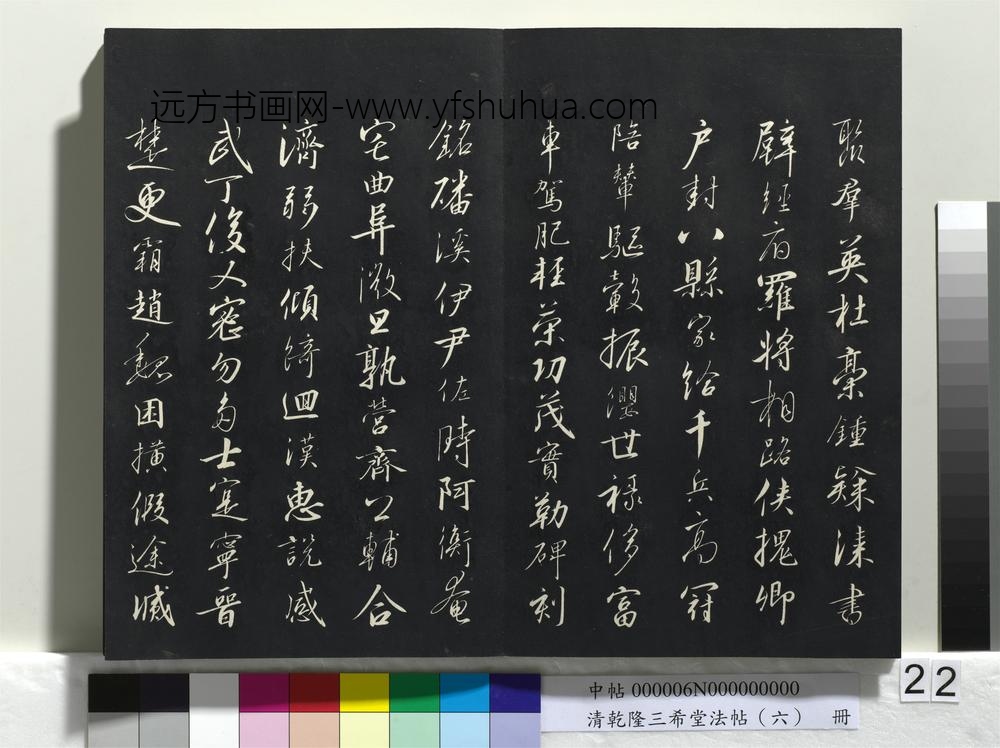 聚群英杜稾鍾隸漆書
壁經府羅將相路俠槐卿
户封八縣家給千兵高冠
陪輦驅轂振纓世禄侈富
車駕肥輕策功茂實勒碑刻
銘磻溪伊尹佐時阿衡奄
宅曲阜微旦孰營齊公輔合
濟弱扶傾綺迴漢惠說感
武丁俊乂密勿多士寔寧晉
楚更霸趙魏困橫假途滅
远方书画网-www.yfshuhua.com
中帖 000006N000000000
清乾隆三希堂法帖（六） 冊
22